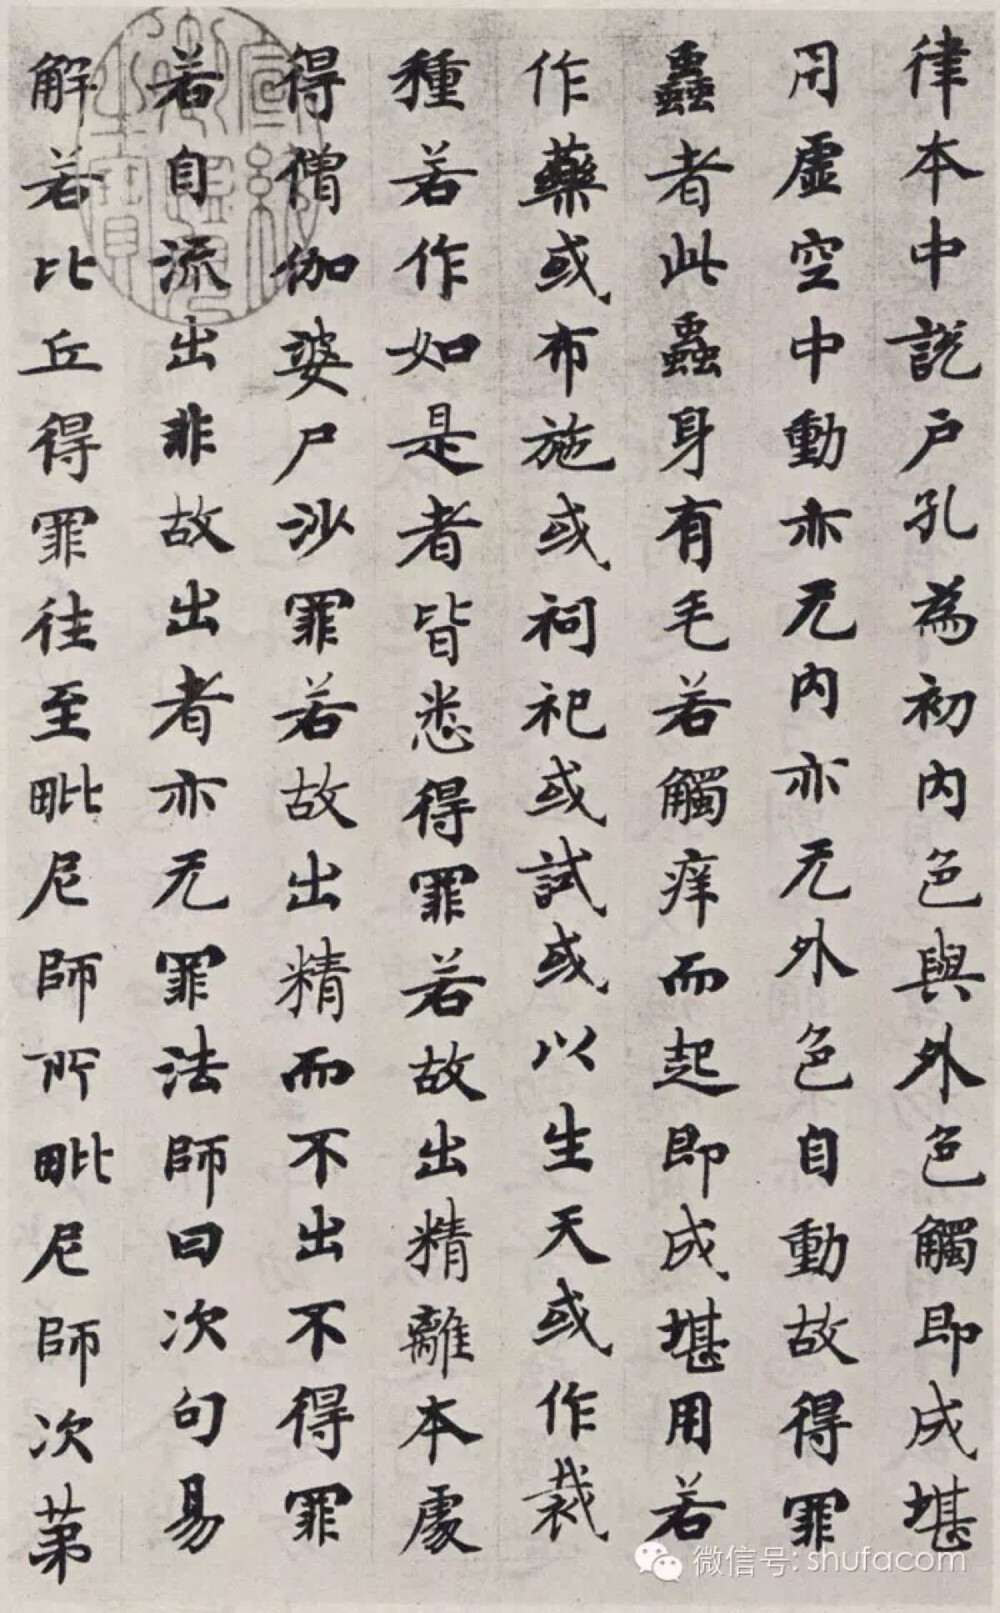 律本中說户孔為初内色與外色觸即成堪
用虛空中動亦无内亦无外色自動故得罪
蟲者此蟲身有毛若觸痒而起即成堪用若
作藥或布施或祠祀或試或以生天或作裁
種若作如是者皆悉得罪若故出精離本處
得僧伽婆尸沙罪若故出精而不出不得罪
若自流出非故出者亦无罪法師曰次句易
解若比丘得罪往至毗尼師所毗尼師次第
微信号: shufacom